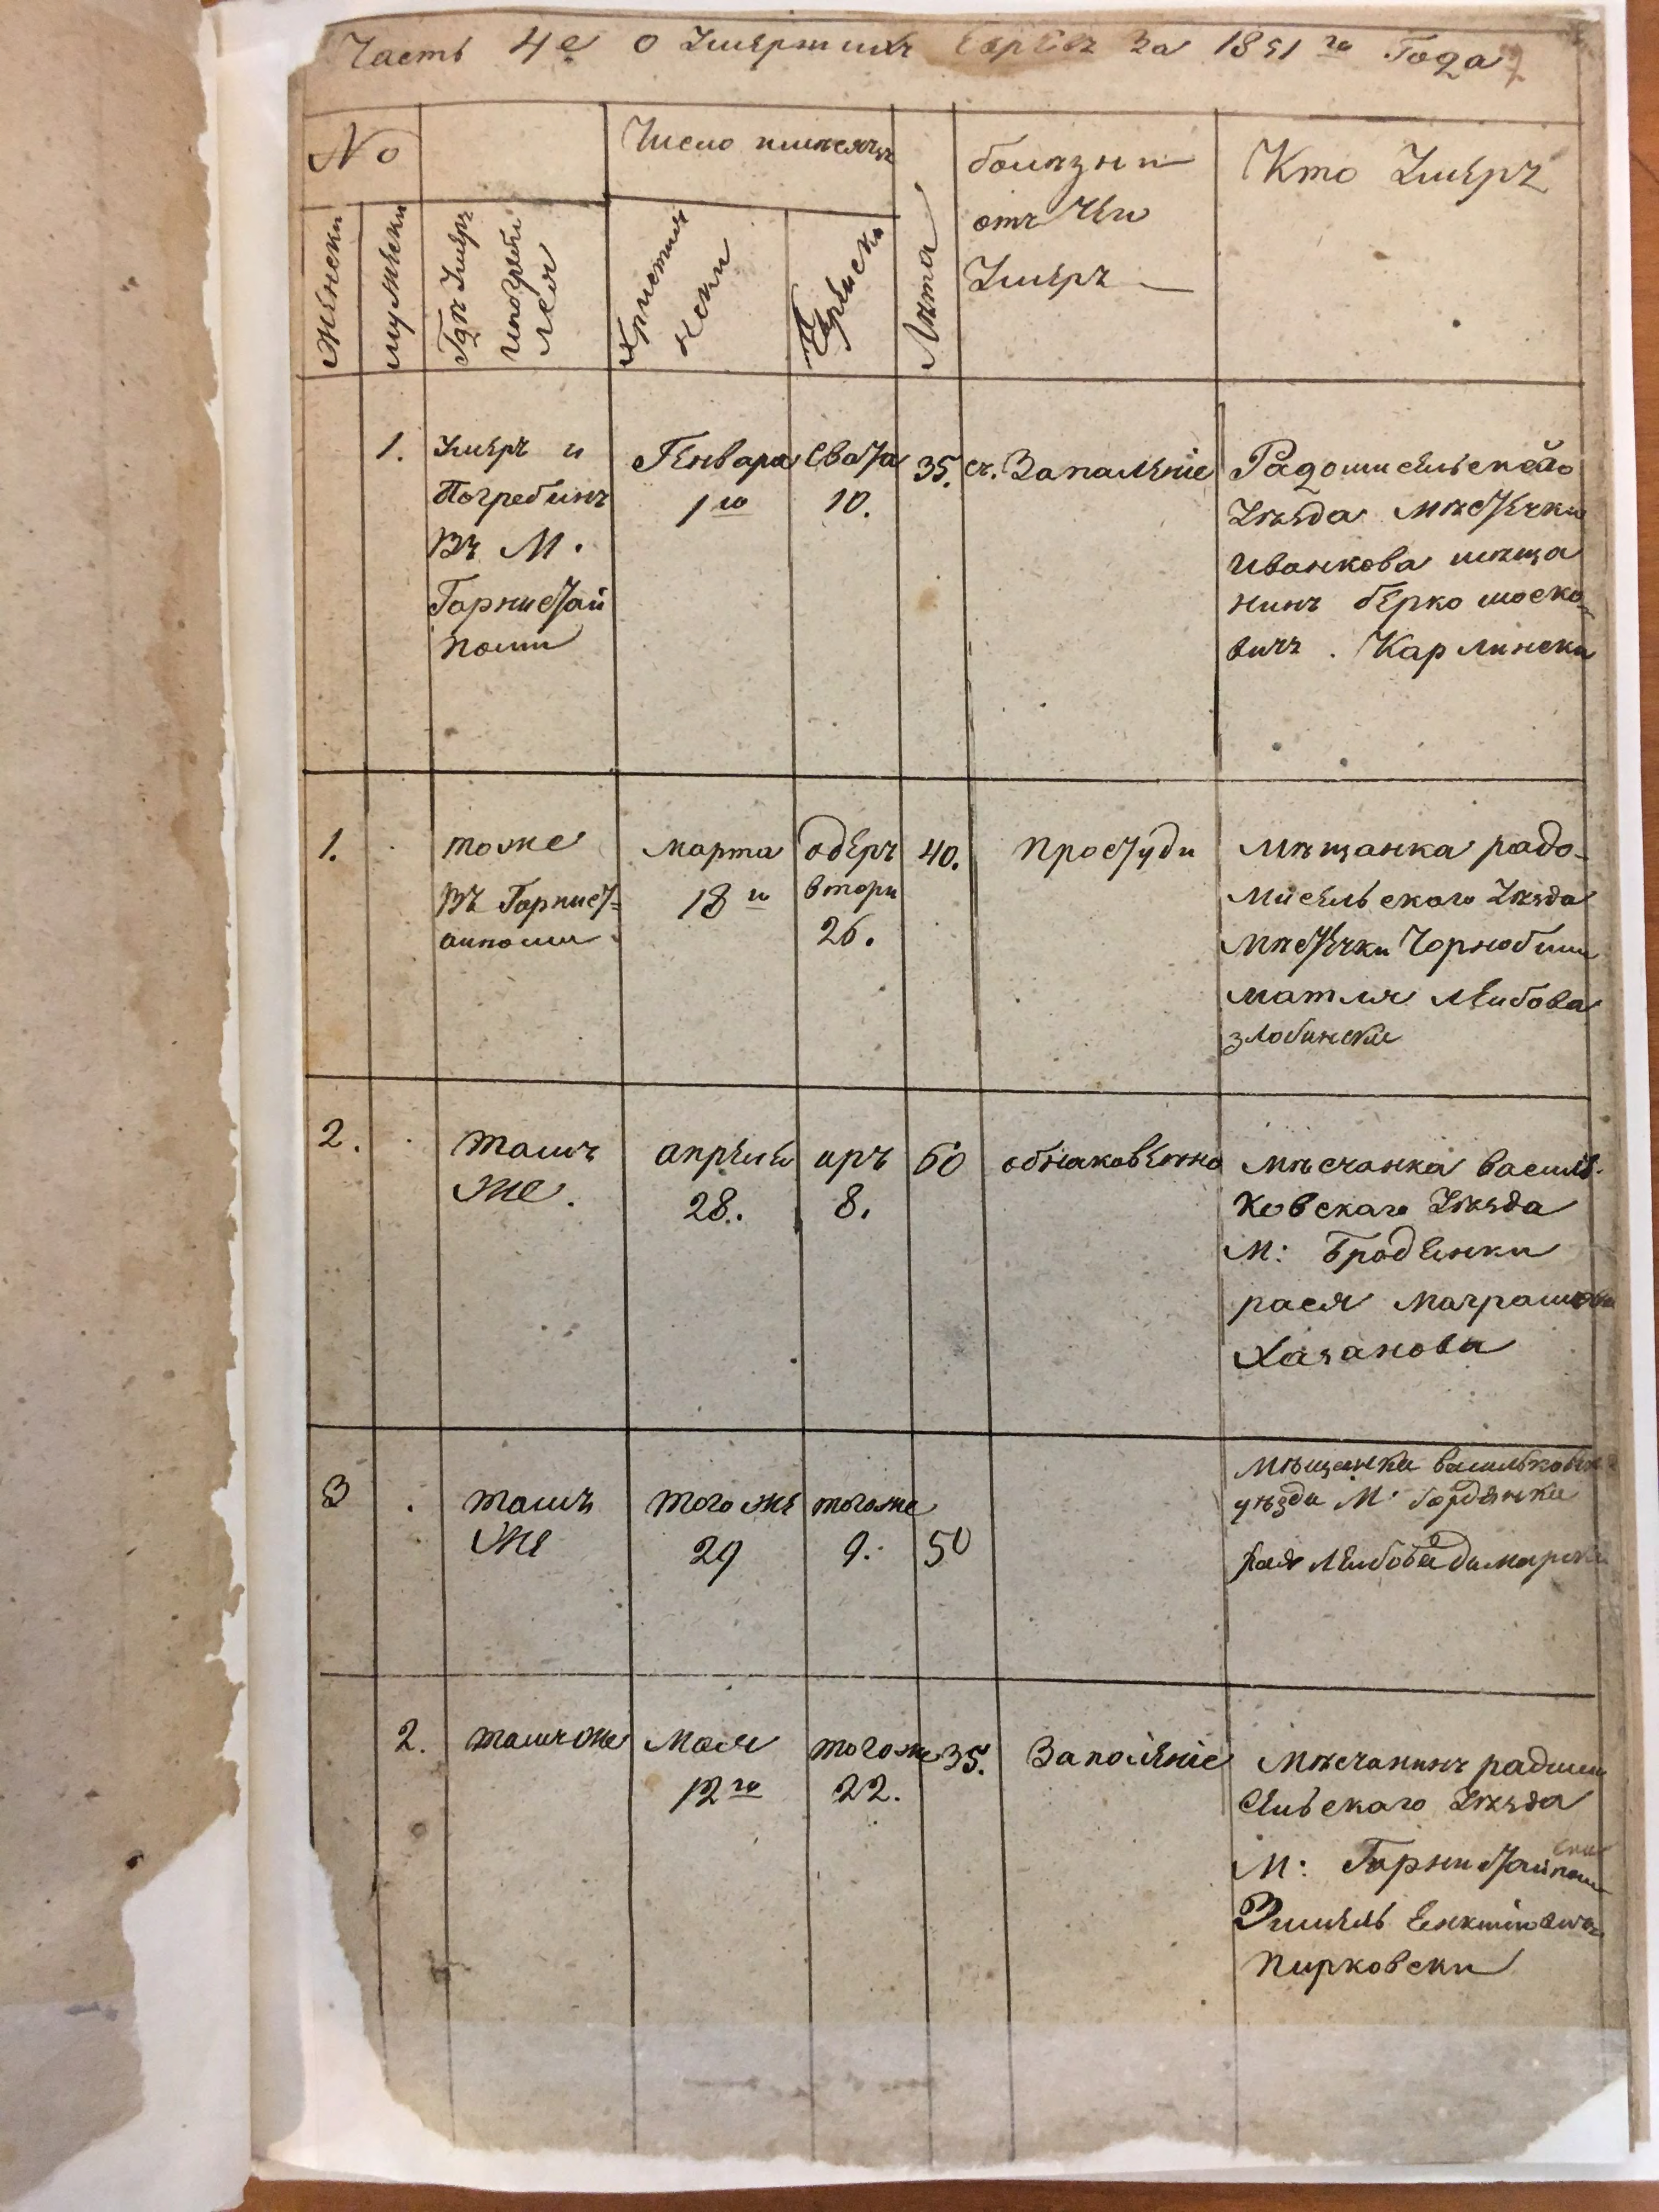 Часть 4е о Умершихъ Евреевъ За 1851 го Года
No
Число и мѣсяцъ
Женски
мужески
Гдѣ Умеръ
и погребен
Христиан
ски
Еврейски
Лѣта
болѣзни
отъ Чеи
Умеръ
Кто Умеръ
1.
Умеръ и
Погребинъ
Въ М.
Горностай
поли
Генвара
1 го
Свата
10.
35.
Запаленіе
Радомисельского
Уѣзда мѣстечки
Иванкова мѣща
нинъ берко моско-
вичъ. Карлински
1.
тоже
Въ Горност-
аиполи
марта
18 и
одеръ
втори
26.
40.
простуди
мѣщанка радо-
мисельскаго Уѣзда
мѣстечки Чорнобили
матля Леибова
злобински
2.
тамъ
же.
апрели
28.
иръ
8.
60
обнаковенно
мѣсчанка василь-
ковскаго Уѣзда
М: Бродецки
рася
Хазанова
3
тамъ
же
того же
29
тогоже
9.
50
мѣщанка васильковск
уѣзда М.
Леибова
2.
тамъ же
Мая
12 го
тогоже
22.
35.
Запаленіе
Мѣсчанинъ радоми
сельскаго Уѣзда
М: Горностайполи
пирковски